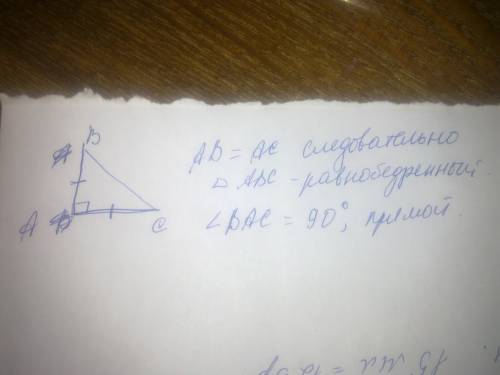 B
A
C
AB = AC следовательно
△ ABC - равнобедренный.
∠BAC = 90°, прямой.